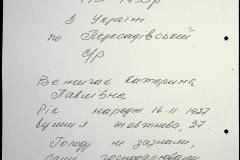 в Україні
по Пересадівській
с/р
Венгичак Катерина
Павлівна
Рік народж 16-11-1927
вулиця Жовтнева, 27
Голоду не зазнали,